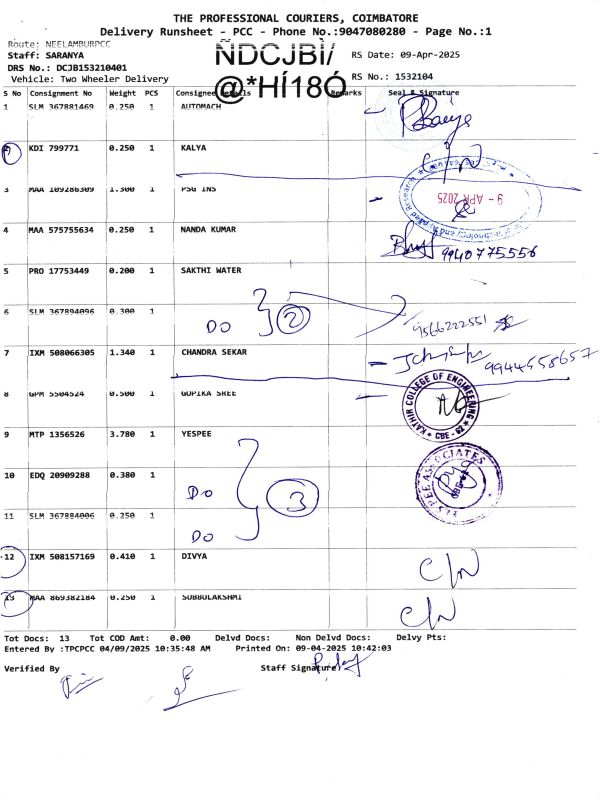 THE PROFESSIONAL COURIERS, COIMBATORE
Delivery Runsheet - PCC - Phone No.:9047080280 - Page No.:1
Route: NEELAMBURPCC
Staff: SARANYA
DRS No.: DCJB153210401
Vehicle: Two Wheeler Delivery
ÑDCJBÌ/
@*HÍ18Ó
RS Date: 09-Apr-2025
RS No.: 1532104
S No Consignment No Weight PCS Consignee Details Remarks Seal & Signature
1 SLM 367881469 0.250 1 AUTOMACH
2 KDI 799771 0.250 1 KALYA
3 MAA 109286309 1.300 1 PSG INS
9 - APR 2025
4 MAA 575755634 0.250 1 NANDA KUMAR
9940775556
5 PRO 17753449 0.200 1 SAKTHI WATER
6 SLM 367894096 0.300 1
DO 2 9566222551
7 IXM 508066305 1.340 1 CHANDRA SEKAR
9944558657
8 GPM 5504524 0.500 1 GOPIKA SREE
KATHIR COLLEGE OF ENGINEERING
CBE - 62
9 MTP 1356526 3.780 1 YESPEE
YES PEE ASSOCIATES
10 EDQ 20909288 0.380 1
DO 3
11 SLM 367884006 0.250 1
DO
12 IXM 508157169 0.410 1 DIVYA
C/N
13 MAA 869382184 0.250 1 SUBBULAKSHMI
C/N
Tot Docs: 13 Tot COD Amt: 0.00 Delvd Docs: Non Delvd Docs: Delvy Pts:
Entered By :TPCPCC 04/09/2025 10:35:48 AM Printed On: 09-04-2025 10:42:03
Verified By Staff Signature